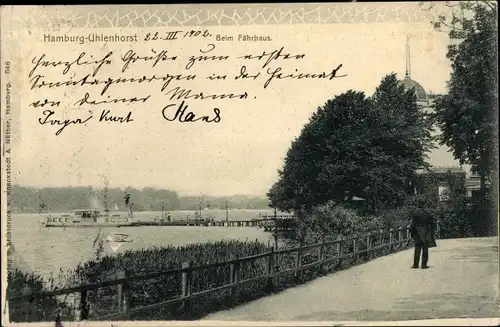 Hamburg-Uhlenhorst 22. III 1902. Beim Fährhaus.
Herzliche Grüße zum ersten
Sonntagmorgen in der Heimat
von deiner Mama.
Kurt Hans
Knackstedt & Näther, Hamburg. 546